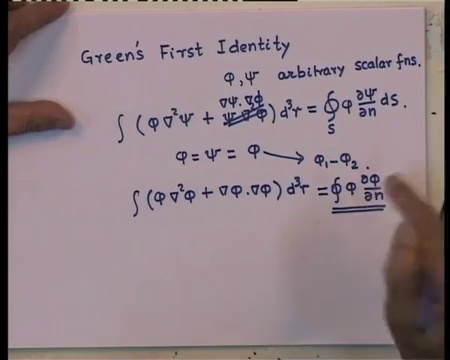 Green's First Identity
φ, ψ arbitrary scalar fns.
∇ψ.∇φ
∫ (φ ∇²ψ + ) d³r = ∮_S φ ∂ψ/∂n dS.
φ = ψ = φ → φ₁-φ₂.
∫ (φ ∇²φ + ∇φ.∇φ) d³r = ∮ φ ∂φ/∂n